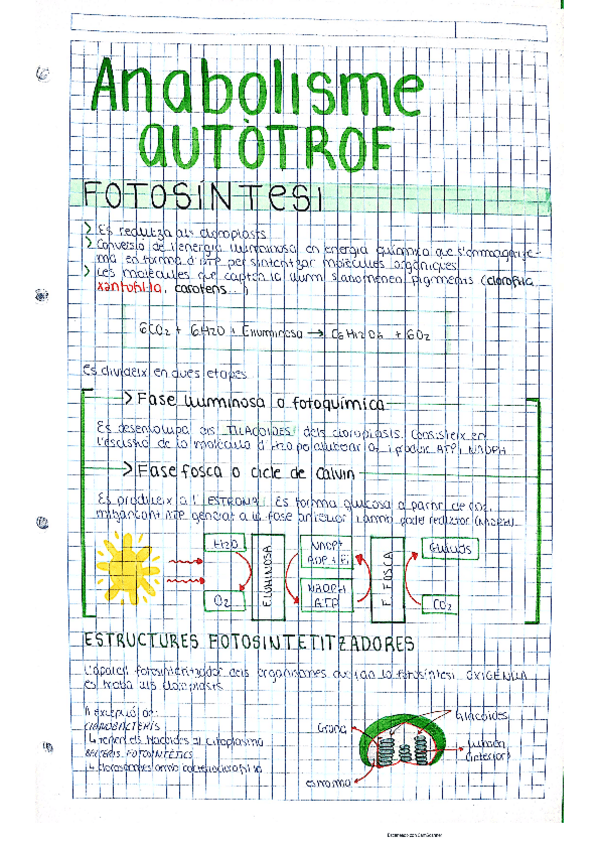 Anabolisme
AUTÒTROF
FOTOSÍNTESI
> Es realitza als cloroplasts
> Conversió de l'energia lluminosa en energia química que s'emmagatze-
ma en forma d'ATP per sintetitzar molècules orgàniques
> Les molècules que capten la llum s'anomenen pigments (clorofil·la,
xantofil·la, carotens...)
6CO2 + 6H2O + Elluminosa → C6H12O6 + 6O2
Es divideix en dues etapes
> Fase lluminosa o fotoquímica
Es desenvolupa als TILACOIDES dels cloroplasts. Consisteix en
l'escissió de la molècula d'H2O per alliberar O2 i produir ATP i NADPH
> Fase fosca o cicle de Calvin
Es produeix a l'ESTROMA. Es forma glucosa a partir de CO2
mitjançant ATP generat a la fase anterior i amb poder reductor (NADPH)
H2O
O2
F. LLUMINOSA
NADP+
ADP + Pi
NADPH
ATP
F. FOSCA
Glucosa
CO2
ESTRUCTURES FOTOSINTETITZADORES
L'aparell fotosintetitzador dels organismes que fan la fotosíntesi OXIGÈNICA
es troba als cloroplasts
A excepció de:
CIANOBACTERIS
↳ tenen els tilacoides al citoplasma
BACTERIS FOTOSINTÈTICS
↳ clorosomes amb bacterioclorofil·la
Grana
tilacoides
lumen
(interior)
estroma
Escaneado con CamScanner